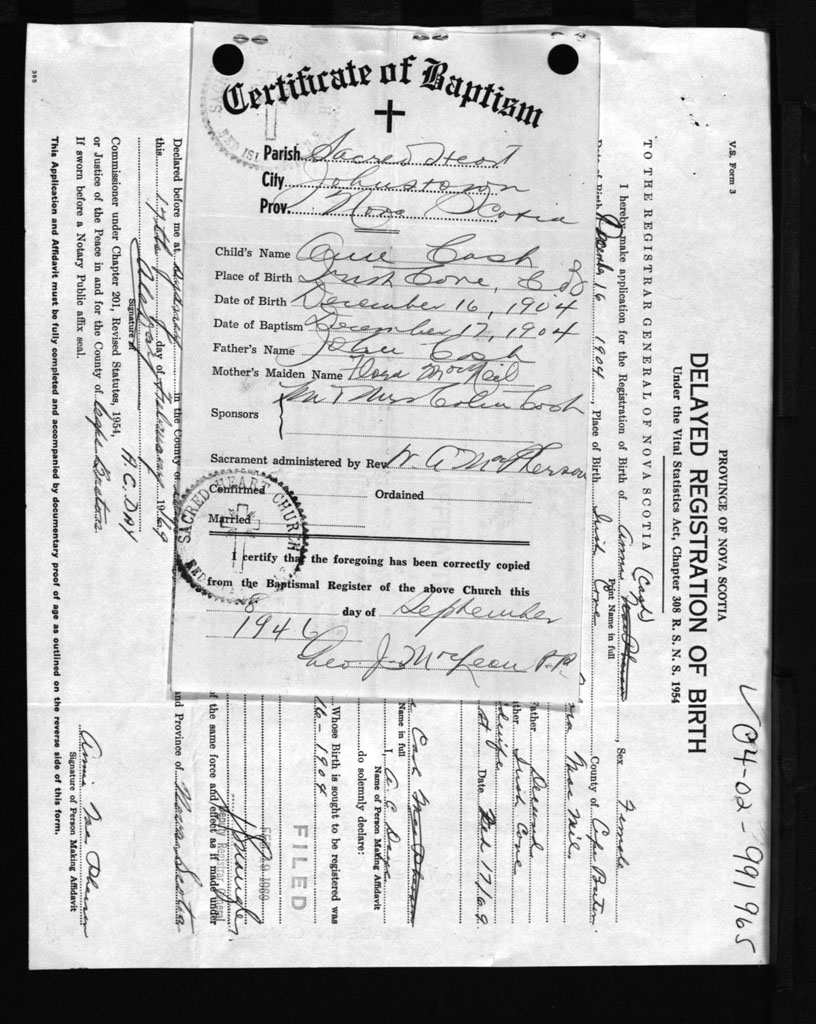 Certificate of Baptism
Parish Sacred Heart
City Johnstown
Prov. Nova Scotia
Child's Name Cash
Place of Birth Irish Cove, C.B.
Date of Birth December 16, 1904
Date of Baptism December 17, 1904
Father's Name John Cash
Mother's Maiden Name Flora McNeil
Sponsors Mr & Mrs Colin Cash
Sacrament administered by Rev. W. A. MacPherson
Confirmed Ordained
Married
I certify that the foregoing has been correctly copied
from the Baptismal Register of the above Church this
8 day of September
1946
Geo. J. McLean P.P.
SACRED HEART CHURCH
RED ISL
V 04-02-991965
V.S. Form 3
PROVINCE OF NOVA SCOTIA
DELAYED REGISTRATION OF BIRTH
Under the Vital Statistics Act, Chapter 308 R. S. N. S. 1954
TO THE REGISTRAR GENERAL OF NOVA SCOTIA
(Cash)
I hereby make application for the Registration of Birth of Annie MacPherson, Sex Female
Print Name in full
Date of Birth December 16 1904, Place of Birth Irish Cove County of Cape Breton
Mac Neil
Father Deceased
Irish Cove
Date Feb 17/69
Cash MacPherson
Name in full
I, A. C. Day
Name of Person Making Affidavit
do solemnly declare:
Whose Birth is sought to be registered was
16-1904
FILED
FEB 19 1969
Deputy Registrar General
of the same force and effect as if made under
Declared before me at Sydney in the County of
and Province of Nova Scotia
this 17th day of February 1969
Signature of
A. C. DAY
Commissioner under Chapter 201, Revised Statutes, 1954,
or Justice of the Peace in and for the County of Cape Breton.
If sworn before a Notary Public affix seal.
Annie MacPherson
Signature of Person Making Affidavit
This Application and Affidavit must be fully completed and accompanied by documentary proof of age as outlined on the reverse side of this form.